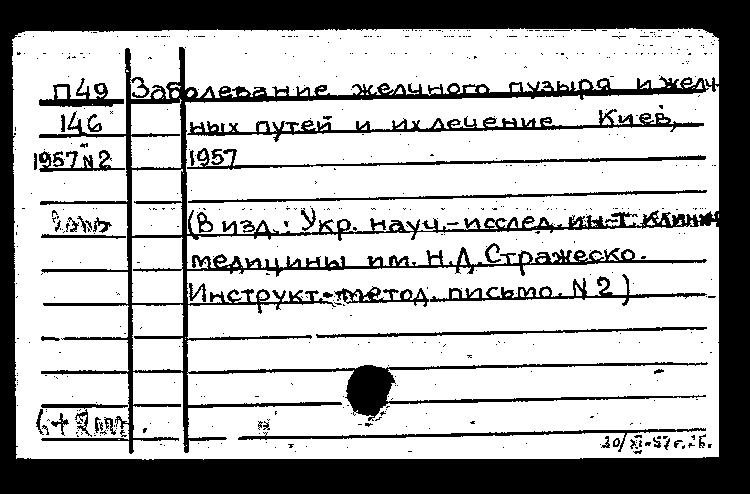 П49 Заболевание желчного пузыря и желч-
146 ных путей и их лечение Киев,
1957 N2 1957
(В изд.: Укр. науч.-исслед. ин-т клинич
медицины им. Н.Д. Стражеско.
Инструкт.-метод. письмо. N 2)